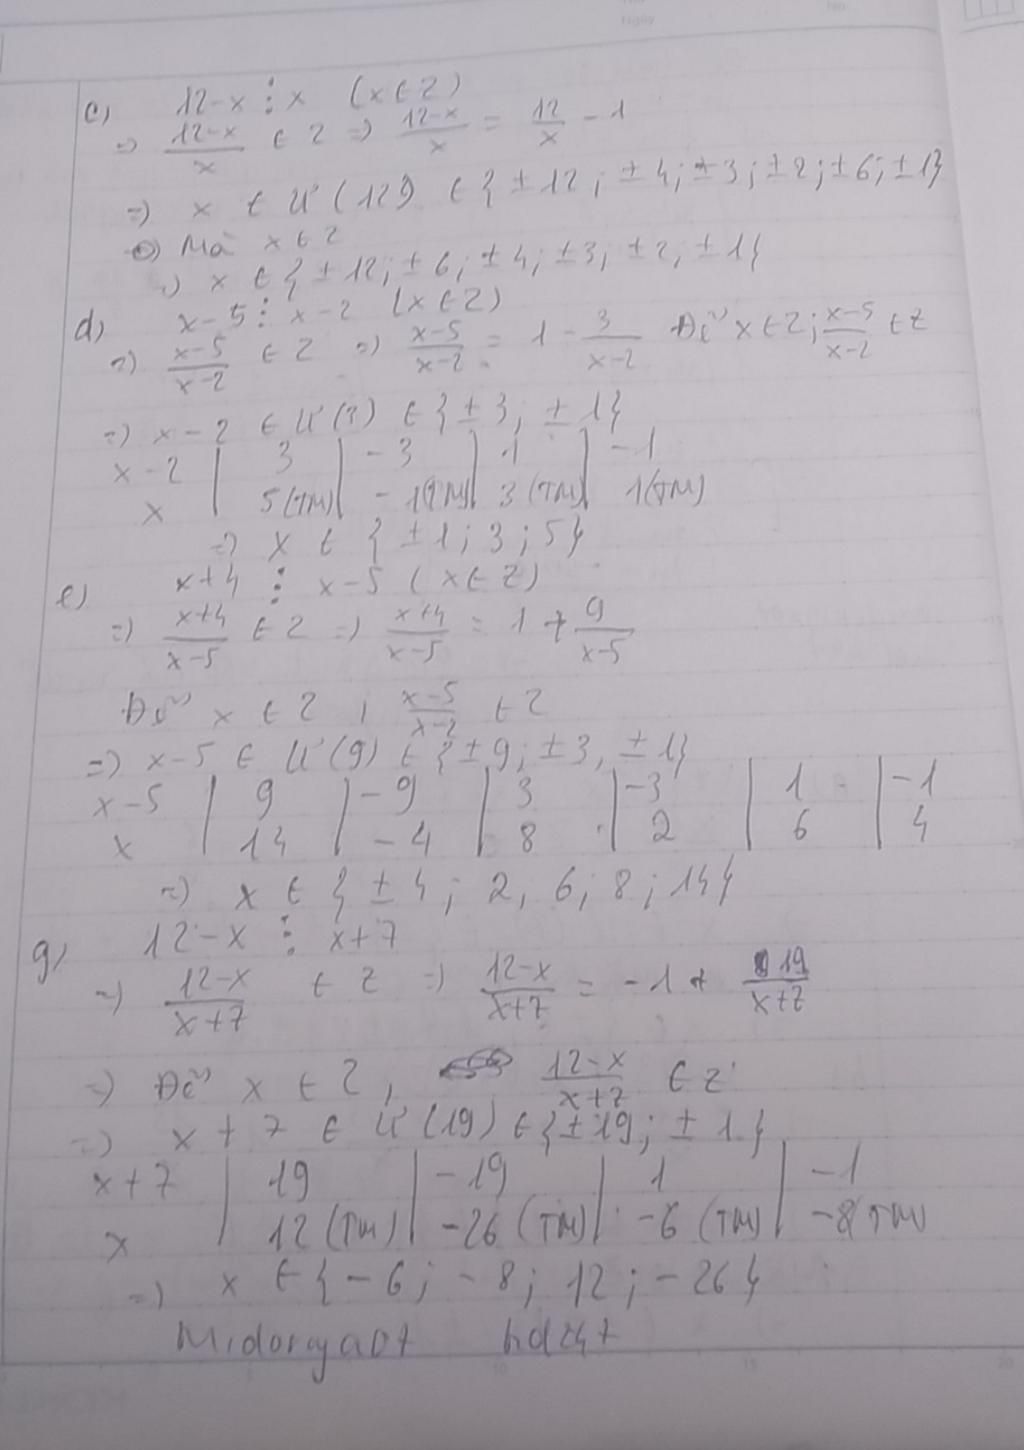 Ngày
No.
c) 12-x ⋮ x (x ∈ Z)
=) \frac{12-x}{x} ∈ Z =) \frac{12-x}{x} = \frac{12}{x} - 1
=) x ∈ Ư(12) ∈ { ±12; ±4; ±3; ±2; ±6; ±1}
=) Mà x ∈ Z
=) x ∈ { ±12; ±6; ±4; ±3, ±2, ±1}
d) x-5 ⋮ x-2 (x ∈ Z)
=) \frac{x-5}{x-2} ∈ Z =) \frac{x-5}{x-2} = 1 - \frac{3}{x-2} Để x ∈ Z; \frac{x-5}{x-2} ∈ Z
=) x-2 ∈ Ư(3) ∈ { ±3, ±1}
x-2 | 3 | -3 | 1 | -1
x | 5(TM) | -1(TM) | 3(TM) | 1(TM)
=) x ∈ { ±1; 3; 5}
e) x+4 ⋮ x-5 (x ∈ Z)
=) \frac{x+4}{x-5} ∈ Z =) \frac{x+4}{x-5} = 1 + \frac{9}{x-5}
Để x ∈ Z, \frac{x-5}{x-2} ∈ Z
=) x-5 ∈ Ư(9) ∈ { ±9; ±3, ±1}
x-5 | 9 | -9 | 3 | -3 | 1 | -1
x | 14 | -4 | 8 | 2 | 6 | 4
=) x ∈ { ±4; 2, 6; 8; 14}
g) 12-x ⋮ x+7
=) \frac{12-x}{x+7} ∈ Z =) \frac{12-x}{x+7} = -1 + \frac{19}{x+7}
=) Để x ∈ Z, \frac{12-x}{x+7} ∈ Z
=) x+7 ∈ Ư(19) ∈ { ±19; ±1}
x+7 | 19 | -19 | 1 | -1
x | 12(TM) | -26(TM) | -6(TM) | -8(TM)
=) x ∈ {-6; -8; 12; -26}
10 15 20